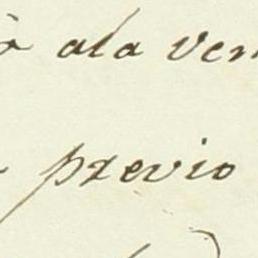 à ala ven
previo